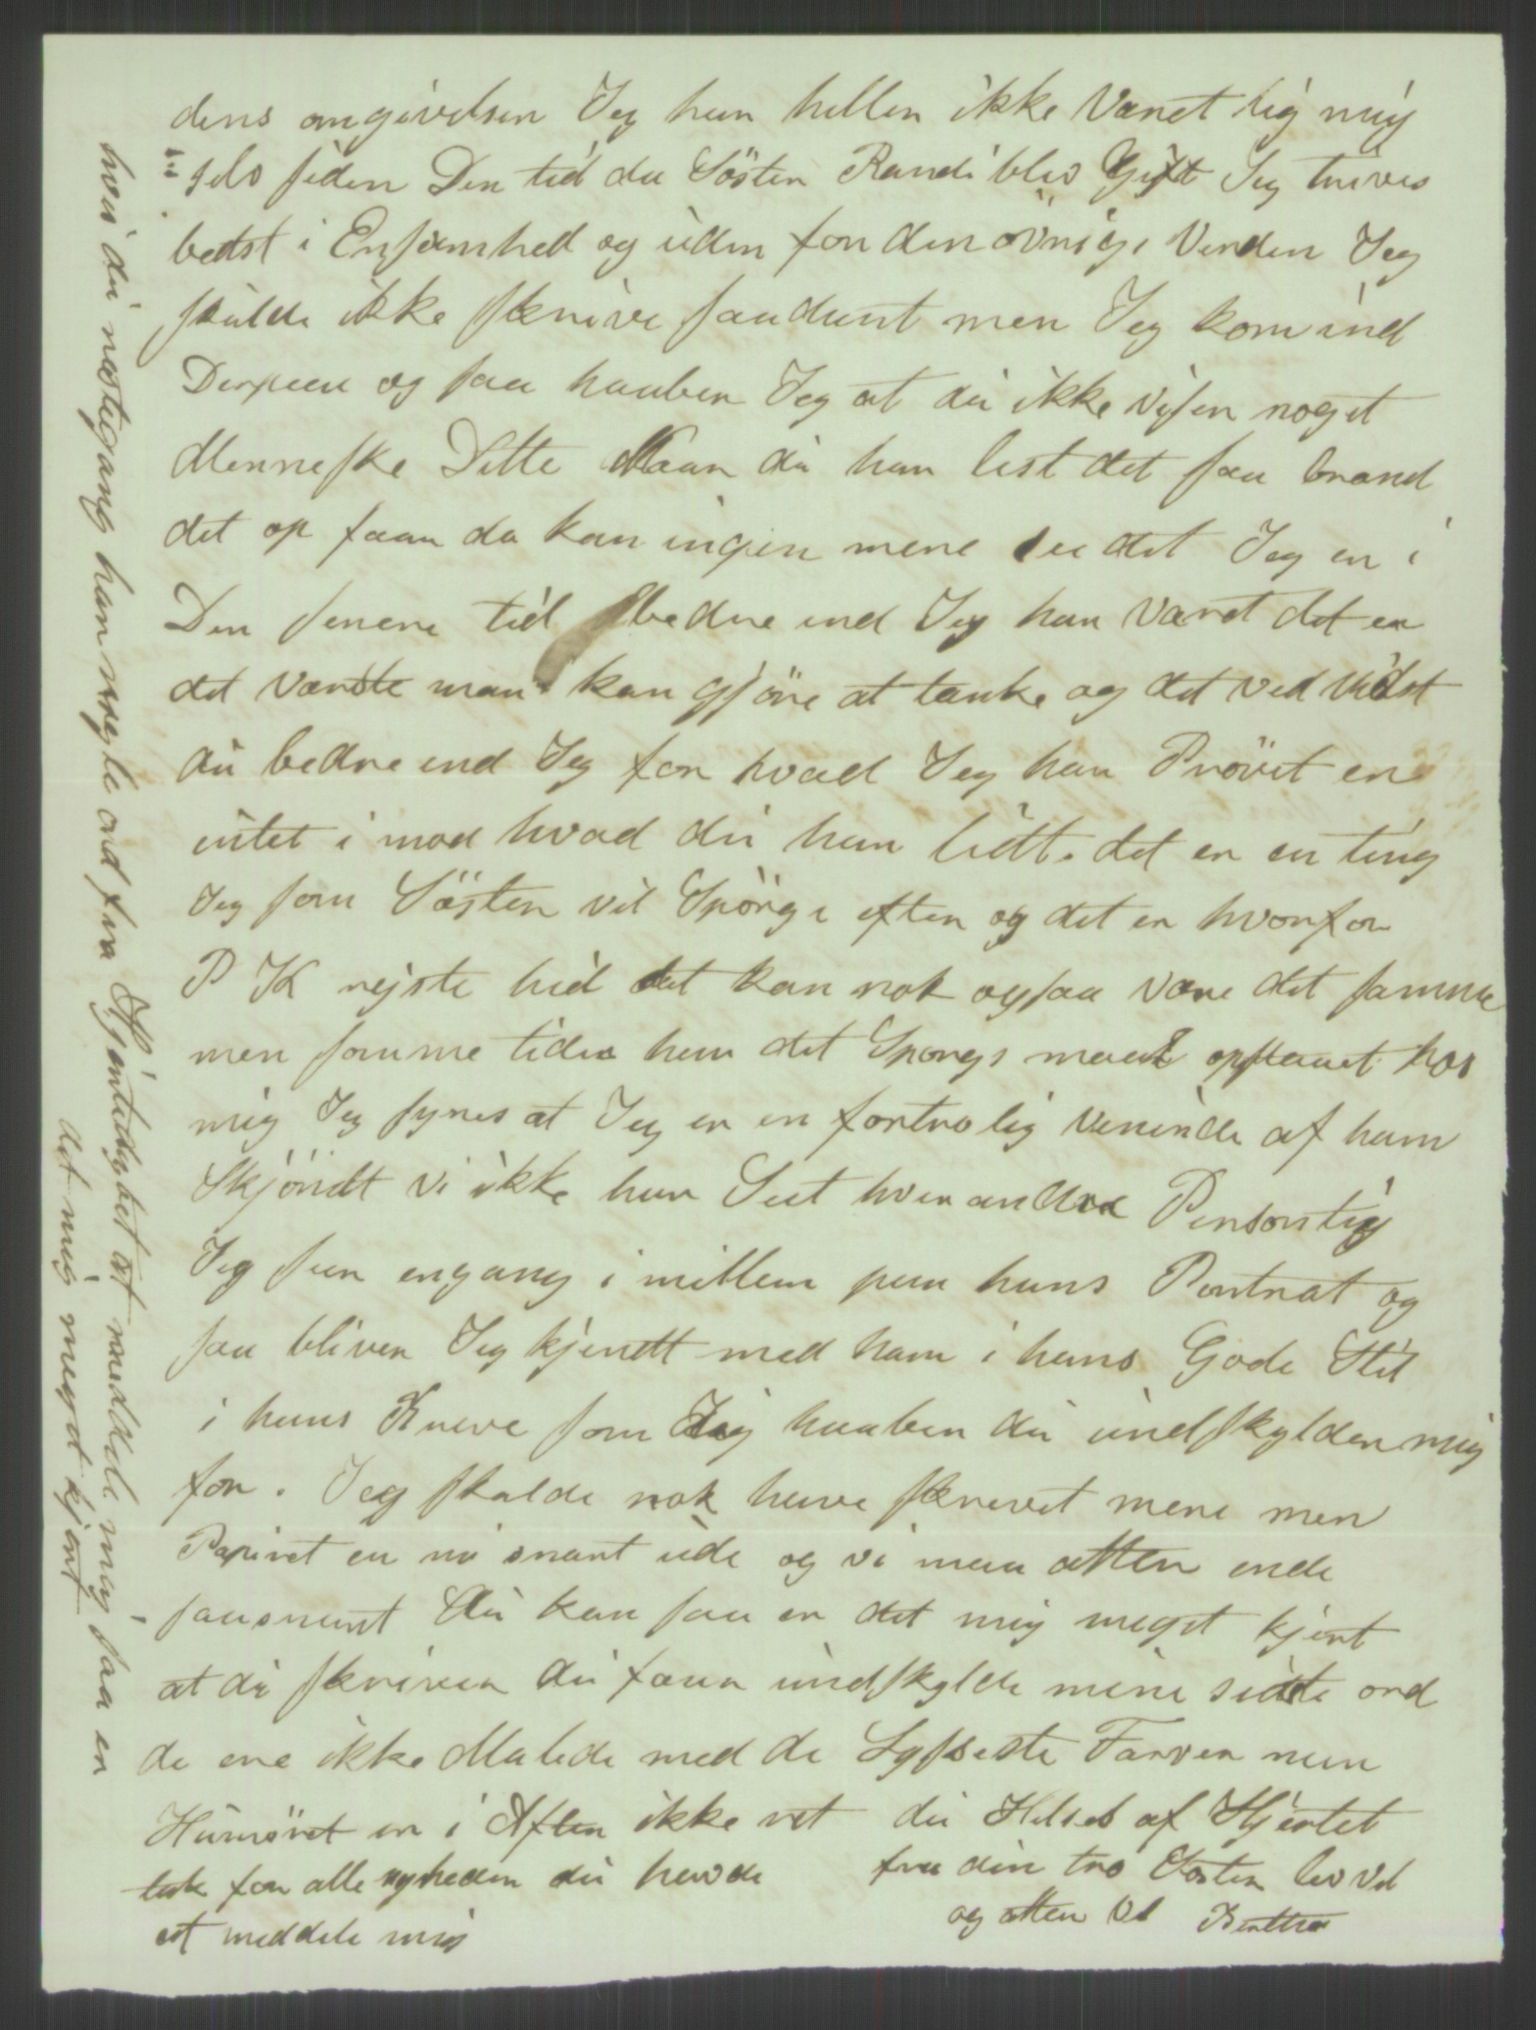 dens omgivelser Jeg har heller ikke Været lig mig
selv siden Den tid da Søster Randi blev Gift Jeg trives
bedst i Ensomhed og uden for den øvrige Verden Jeg
skulde ikke skrive saadant men Jeg kom ind
Derpaa og saa haaber Jeg at du ikke viser noget
Menneske Dette Naar du har lest det saa brænd
det op for da kan ingen mere se det Jeg er i
Den senere tid bedre end Jeg har Været det er
det værste man kan gjøre at tænke og det ved vidst
du bedre end Jeg for hvad Jeg har Prøvet er
intet i mod hvad du har lidt. det er en ting
Jeg som Søster vil Spørge efter og det er hvorfor
P K rejste hid det kan nok ogsaa være det samme
men somme tider har det Spørgs maal opstaaet hos
mig Jeg synes at Jeg er en fortrolig Veninde af ham
Skjøndt vi ikke har Seet hverandre Personlig
Jeg ser engang i mellem paa hans Portræt og
saa bliver Jeg kjendt med ham i hans Gode Stil
i hans Breve som Jeg haaber du undskylder mig
for. Jeg skulde nok have skrevet mere men
Papiret er nu snart ude og vi maa atter ende
saasnart du kan saa er det mig meget kjert
at du skriver du faar undskylde mine sidste ord
de ere ikke Malede med de Lyseste Farver men
Humøret er i Aften ikke ret
tak for alle nyheder du havde
at meddele mig
du Helses af Hjertet
fra din tro Søster lev Vel
og atter Vel Berthe
hvis du næstegang har nogle ord fra Hjertedybet at meddele mig saa er
det mig meget kjert